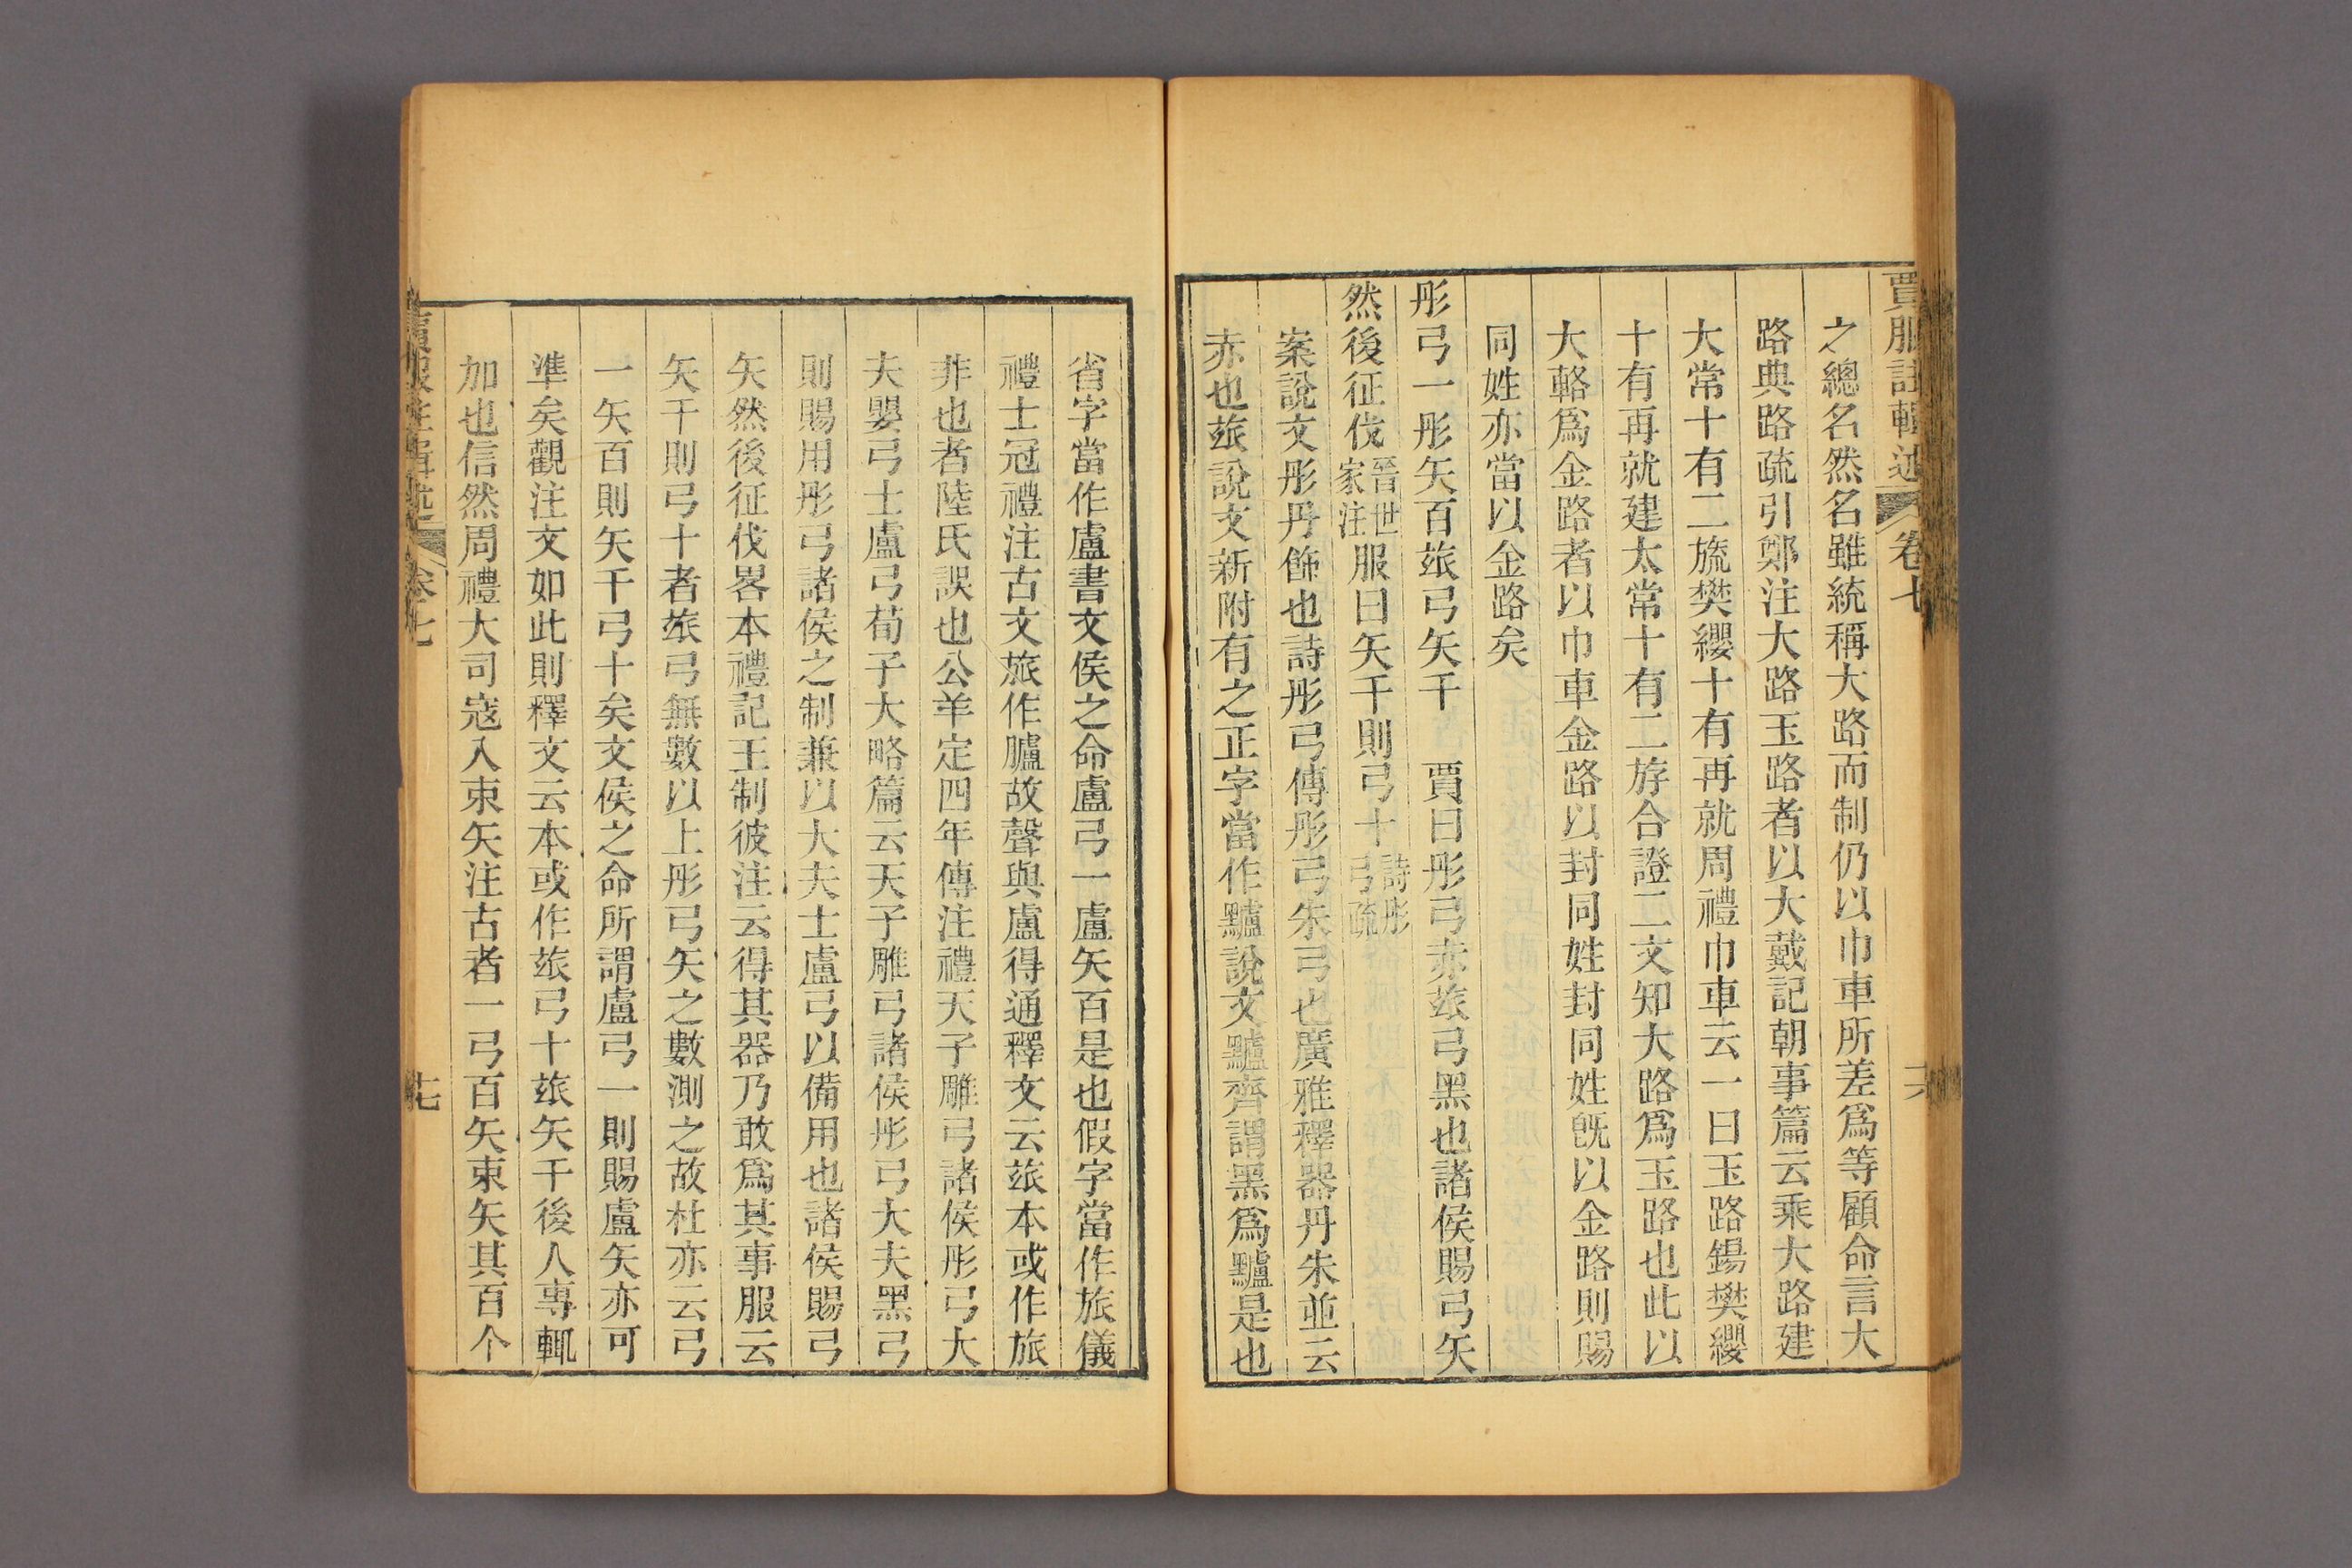 賈服註輯述 卷七 十六
之總名然名雖統稱大路而制仍以巾車所差爲等顧命言大
路典路疏引鄭注大路玉路者以大戴記朝事篇云乘大路建
大常十有二旒樊纓十有再就周禮巾車云一曰玉路鍚樊纓
十有再就建太常十有二斿合證二文知大路爲玉路也此以
大輅爲金路者以巾車金路以封同姓封同姓旣以金路則賜
同姓亦當以金路矣
彤弓一彤矢百玈弓矢千 賈曰彤弓赤玈弓黑也諸侯賜弓矢
然後征伐晉世家注服曰矢千則弓十詩彤弓疏
案說文彤丹飾也詩彤弓傳彤弓朱弓也廣雅釋器丹朱並云
赤也玈說文新附有之正字當作黸說文黸齊謂黑爲黸是也
省字當作盧書文侯之命盧弓一盧矢百是也假字當作旅儀
禮士冠禮注古文旅作臚故聲與盧得通釋文云玈本或作旅
非也者陸氏誤也公羊定四年傳注禮天子雕弓諸侯彤弓大
夫嬰弓士盧弓荀子大略篇云天子雕弓諸侯彤弓大夫黑弓
則賜用彤弓諸侯之制兼以大夫士盧弓以備用也諸侯賜弓
矢然後征伐畧本禮記王制彼注云得其器乃敢爲其事服云
矢千則弓十者玈弓無數以上彤弓矢之數測之故杜亦云弓
一矢百則矢千弓十矣文侯之命所謂盧弓一則賜盧矢亦可
準矣觀注文如此則釋文云本或作玈弓十玈矢千後人專輒
加也信然周禮大司寇入束矢注古者一弓百矢束矢其百个
賈服註輯述 卷七 十七